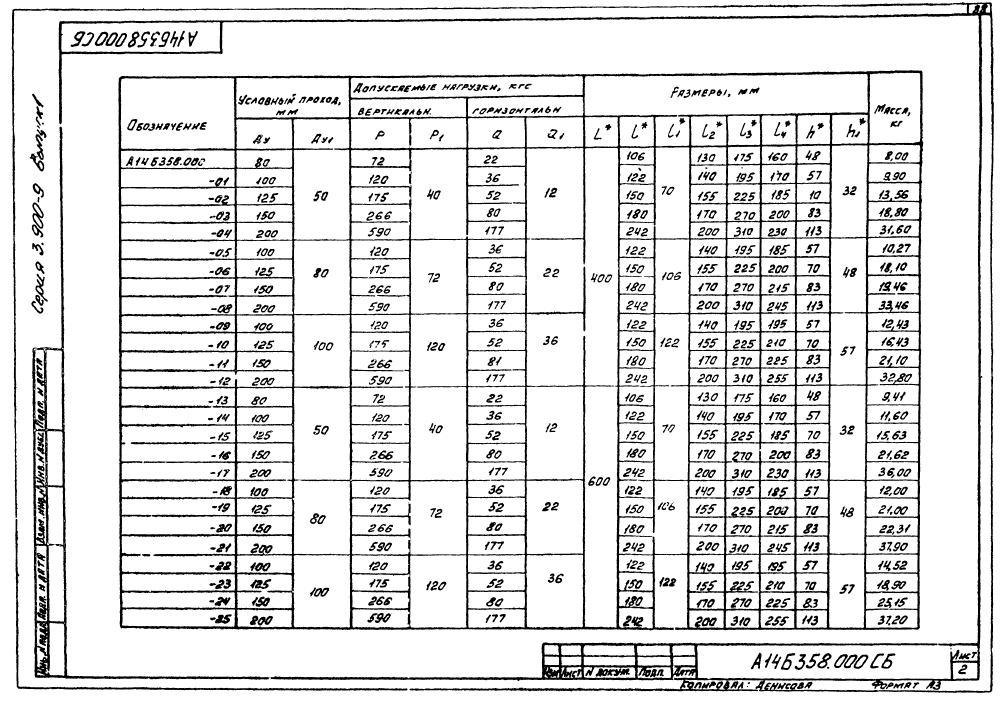 88
А14Б358000СБ
Серия 3.900-9 Выпуск 1
Обозначение | Условный проход, мм | Допускаемые нагрузки, кгс | Размеры, мм | Масса, кг
вертикальн. | горизонтальн.
Ду | Ду1 | P | P1 | Q | Q1 | L* | l* | l1* | l2* | l3* | l4* | h* | h1*
А14Б358.000 | 80 | 50 | 72 | 40 | 22 | 12 | 400 | 106 | 70 | 130 | 175 | 160 | 48 | 32 | 8,00
-01 | 100 | 120 | 36 | 122 | 140 | 195 | 170 | 57 | 9,90
-02 | 125 | 175 | 52 | 150 | 155 | 225 | 185 | 10 | 13,56
-03 | 150 | 266 | 80 | 180 | 170 | 270 | 200 | 83 | 18,80
-04 | 200 | 590 | 177 | 242 | 200 | 310 | 230 | 113 | 31,60
-05 | 100 | 80 | 120 | 72 | 36 | 22 | 122 | 106 | 140 | 195 | 185 | 57 | 48 | 10,27
-06 | 125 | 175 | 52 | 150 | 155 | 225 | 200 | 70 | 18,10
-07 | 150 | 266 | 80 | 180 | 170 | 270 | 215 | 83 | 19,46
-08 | 200 | 590 | 177 | 242 | 200 | 310 | 245 | 113 | 33,46
-09 | 100 | 100 | 120 | 120 | 36 | 36 | 122 | 122 | 140 | 195 | 195 | 57 | 57 | 12,43
-10 | 125 | 175 | 52 | 150 | 155 | 225 | 210 | 70 | 16,43
-11 | 150 | 266 | 81 | 180 | 170 | 270 | 225 | 83 | 21,10
-12 | 200 | 590 | 177 | 242 | 200 | 310 | 255 | 113 | 32,80
-13 | 80 | 50 | 72 | 40 | 22 | 12 | 600 | 106 | 70 | 130 | 175 | 160 | 48 | 32 | 9,41
-14 | 100 | 120 | 36 | 122 | 140 | 195 | 170 | 57 | 11,60
-15 | 125 | 175 | 52 | 150 | 155 | 225 | 185 | 70 | 15,63
-16 | 150 | 266 | 80 | 180 | 170 | 270 | 200 | 83 | 21,62
-17 | 200 | 590 | 177 | 242 | 200 | 310 | 230 | 113 | 36,00
-18 | 100 | 80 | 120 | 72 | 36 | 22 | 122 | 106 | 140 | 195 | 185 | 57 | 48 | 12,00
-19 | 125 | 175 | 52 | 150 | 155 | 225 | 200 | 70 | 21,00
-20 | 150 | 266 | 80 | 180 | 170 | 270 | 215 | 83 | 22,31
-21 | 200 | 590 | 177 | 242 | 200 | 310 | 245 | 113 | 37,90
-22 | 100 | 100 | 120 | 120 | 36 | 36 | 122 | 122 | 140 | 195 | 195 | 57 | 57 | 14,52
-23 | 125 | 175 | 52 | 150 | 155 | 225 | 210 | 70 | 18,90
-24 | 150 | 266 | 80 | 180 | 170 | 270 | 225 | 83 | 25,15
-25 | 200 | 590 | 177 | 242 | 200 | 310 | 255 | 113 | 37,20
Инв.№ подл. Подп. и дата Взам.инв.№ Инв.№ дубл. Подп. и дата
Изм Лист № докум. Подп. Дата
А14Б358.000 СБ
Лист
2
Копировал: Денисова Формат А3